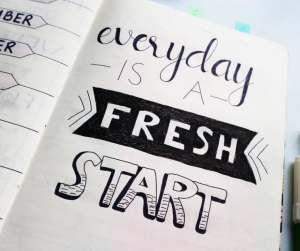 MBER
ER
everyday
– IS – A –
FRESH
START